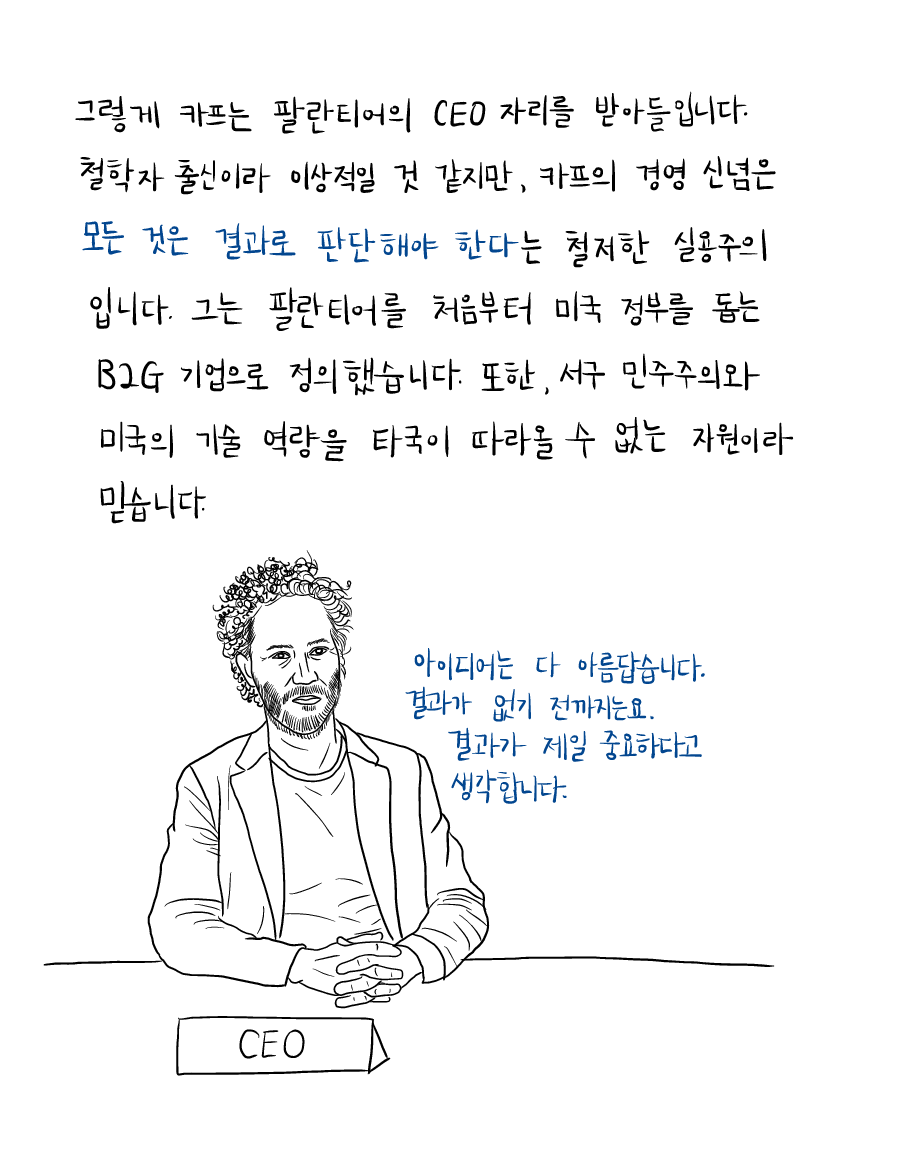 그렇게 카프는 팔란티어의 CEO 자리를 받아들입니다.
철학자 출신이라 이상적일 것 같지만, 카프의 경영 신념은
모든 것은 결과로 판단해야 한다는 철저한 실용주의
입니다. 그는 팔란티어를 처음부터 미국 정부를 돕는
B2G 기업으로 정의했습니다. 또한, 서구 민주주의와
미국의 기술 역량을 타국이 따라올 수 없는 자원이라
믿습니다.
아이디어는 다 아름답습니다.
결과가 없기 전까지는요.
결과가 제일 중요하다고
생각합니다.
CEO